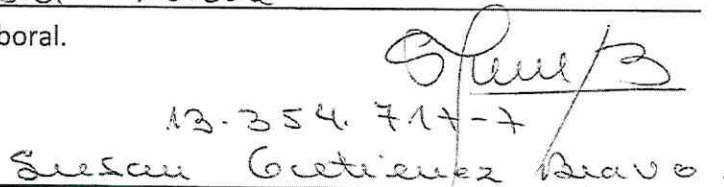 boral.
13.354.717-7
Susan Gutierrez Bravo